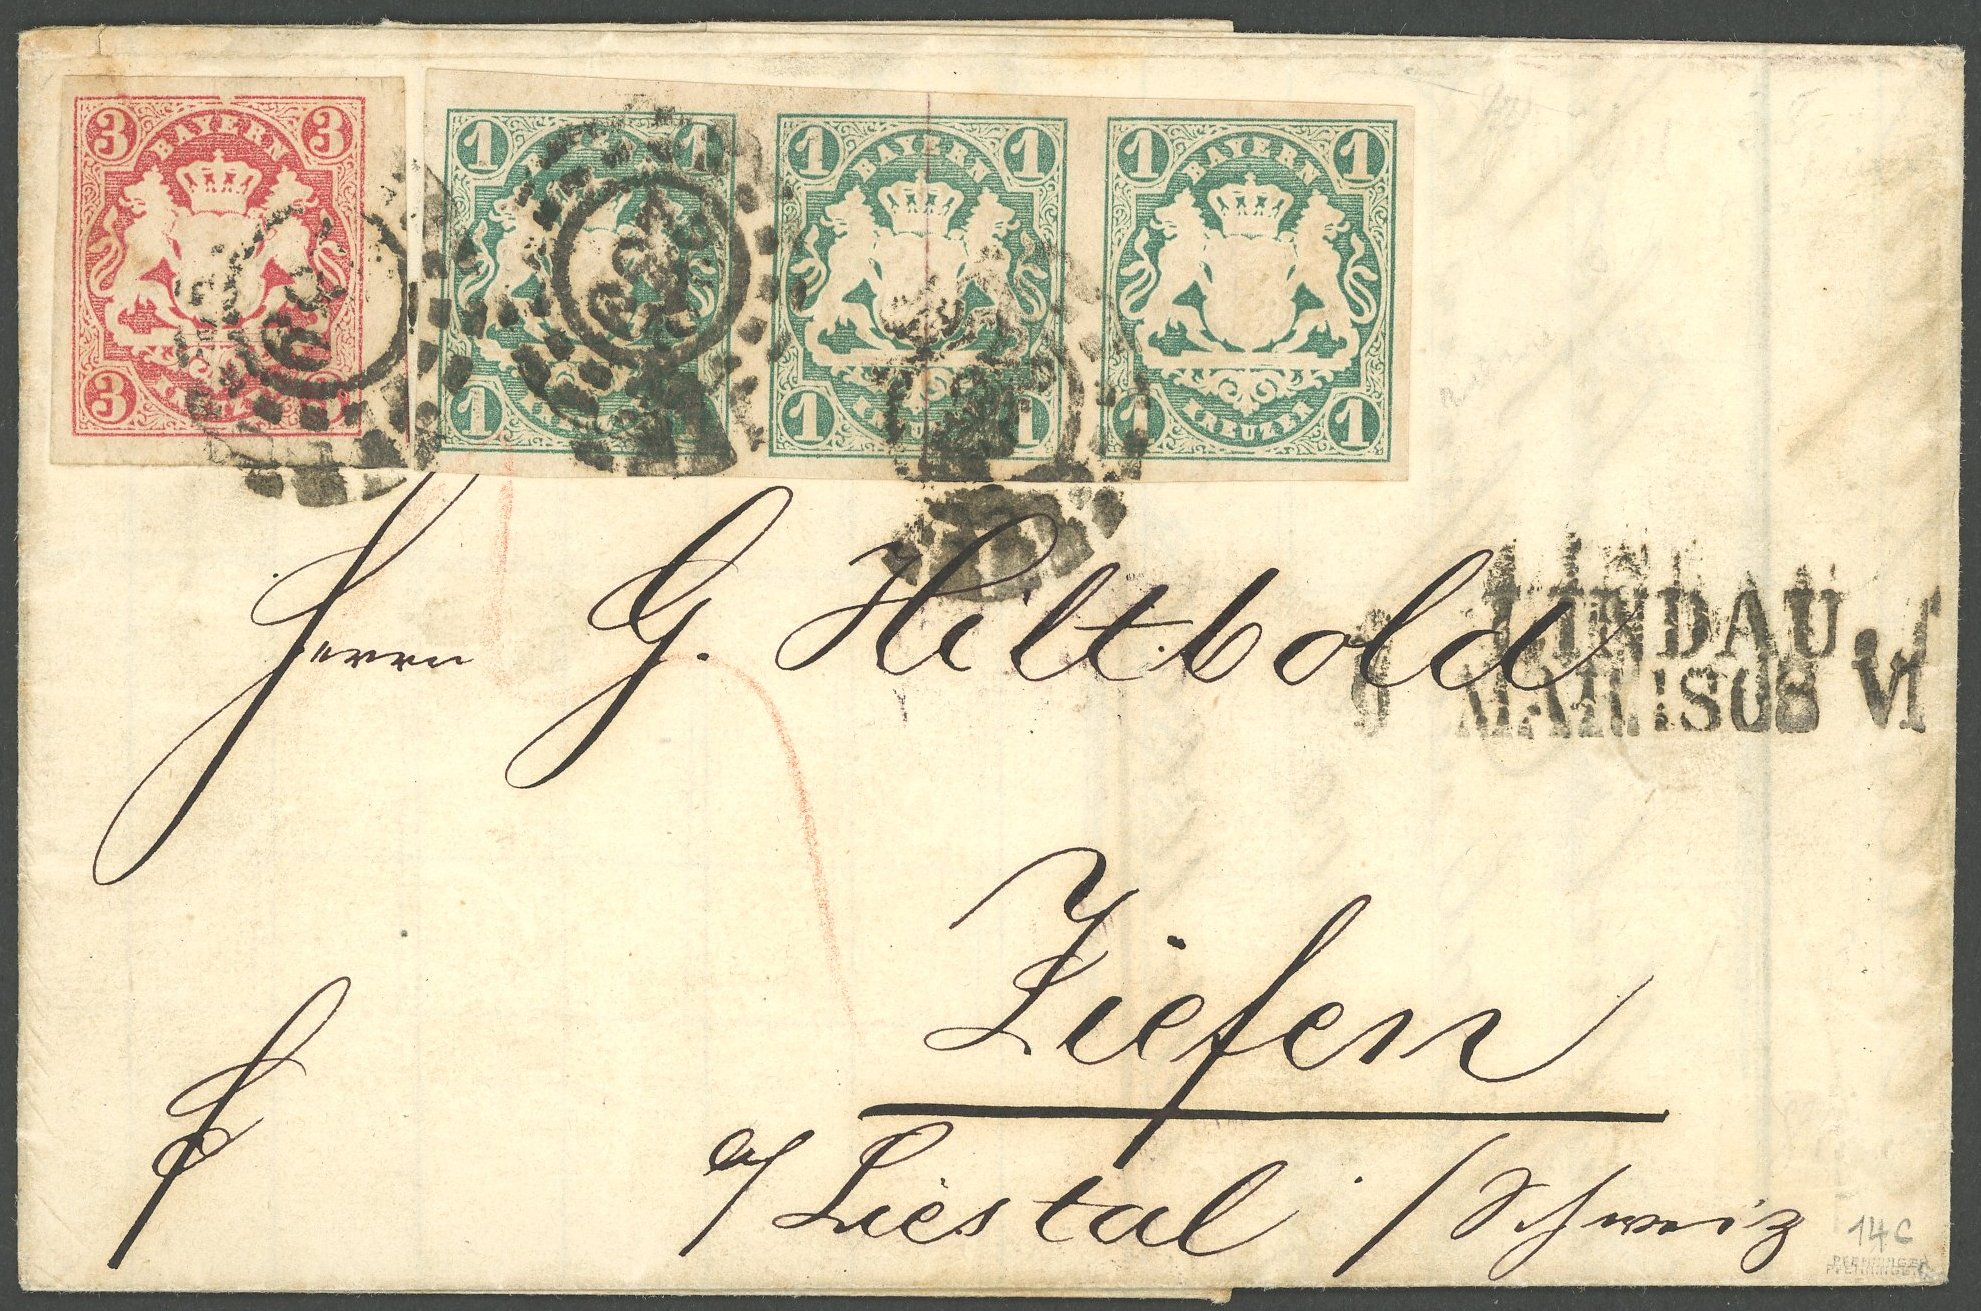 3 3
BAYERN
3
1 1
1
KREUZER
1 1
BAYERN
1 1
KREUZER
1 1
BAYERN
1 1
KREUZER
LINDAU
Herrn G. Hiltbold
VI
Ziefen
a/ Liestal. / Schweiz
14C
PFENNINGER